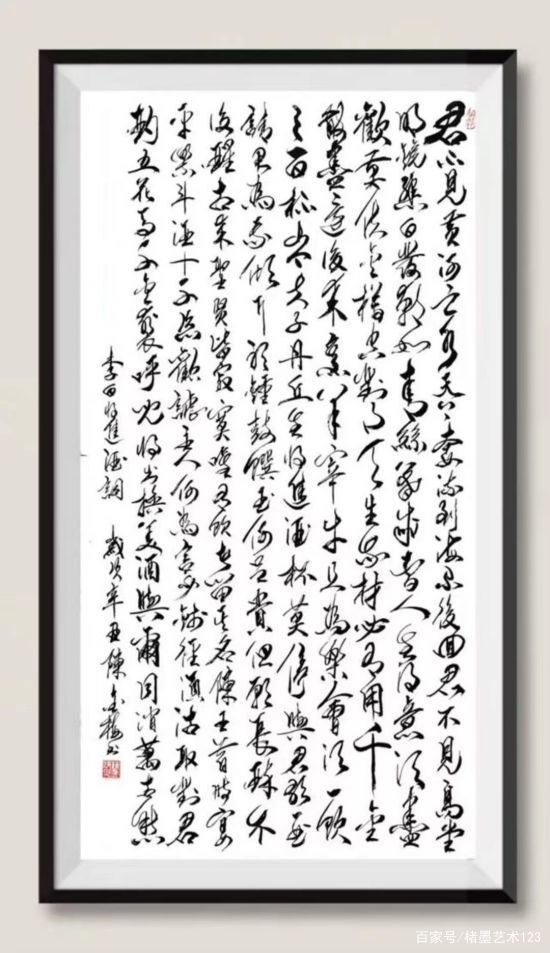 君不見黄河之水天上来奔流到海不復回君不見高堂
明鏡悲白髮朝如青絲暮成雪人生得意須盡
歡莫使金樽空對月天生我材必有用千金
散盡還復来烹羊宰牛且為樂會須一飲
三百杯岑夫子丹丘生将進酒杯莫停與君歌一曲
請君為我傾耳聽鐘鼓饌玉何足貴但願長醉不
復醒古来聖賢皆寂寞惟有飲者留其名陳王昔時宴
平樂斗酒十千恣歡謔主人何為言少錢徑須沽取對君
酌五花馬千金裘呼兒将出換美酒與爾同消萬古愁
李白将進酒詞 歲次辛丑陳金梅书
百家号/楮墨艺术123